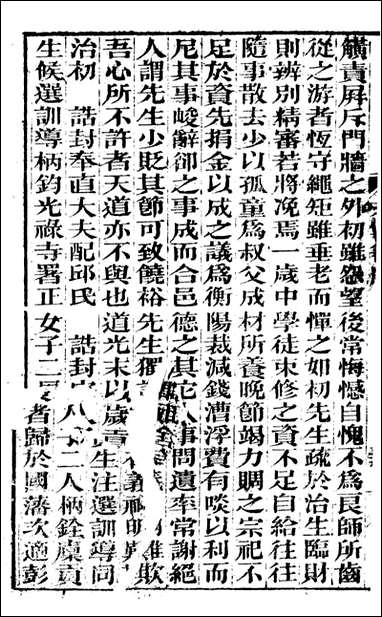 觥責屏斥門牆之外初雖怨望後常悔憾自愧不爲良師所齒
從之游者恆守繩矩雖垂老而憚之如初先生疏於治生臨財
則辨別精審若將凂焉一歲中學徒束修之資不足自給往往
隨事散去少以孤童爲叔父成材所養晚節竭力賙之宗祀不
足於資先捐金以成之議爲衡陽裁減錢漕浮費有啖以利而
尼其事峻辭卻之事成而合邑德之其它人事問遺率常謝絕
人謂先生少貶其節可致饒裕先生獨
吾心所不許者天道亦不與也道光末以歲貢生注選訓導同
治初 誥封奉直大夫配邱氏 誥封 八子二人柄銓廩貢
生候選訓導柄鈞光祿寺署正女子二 者歸於國藩次適彭